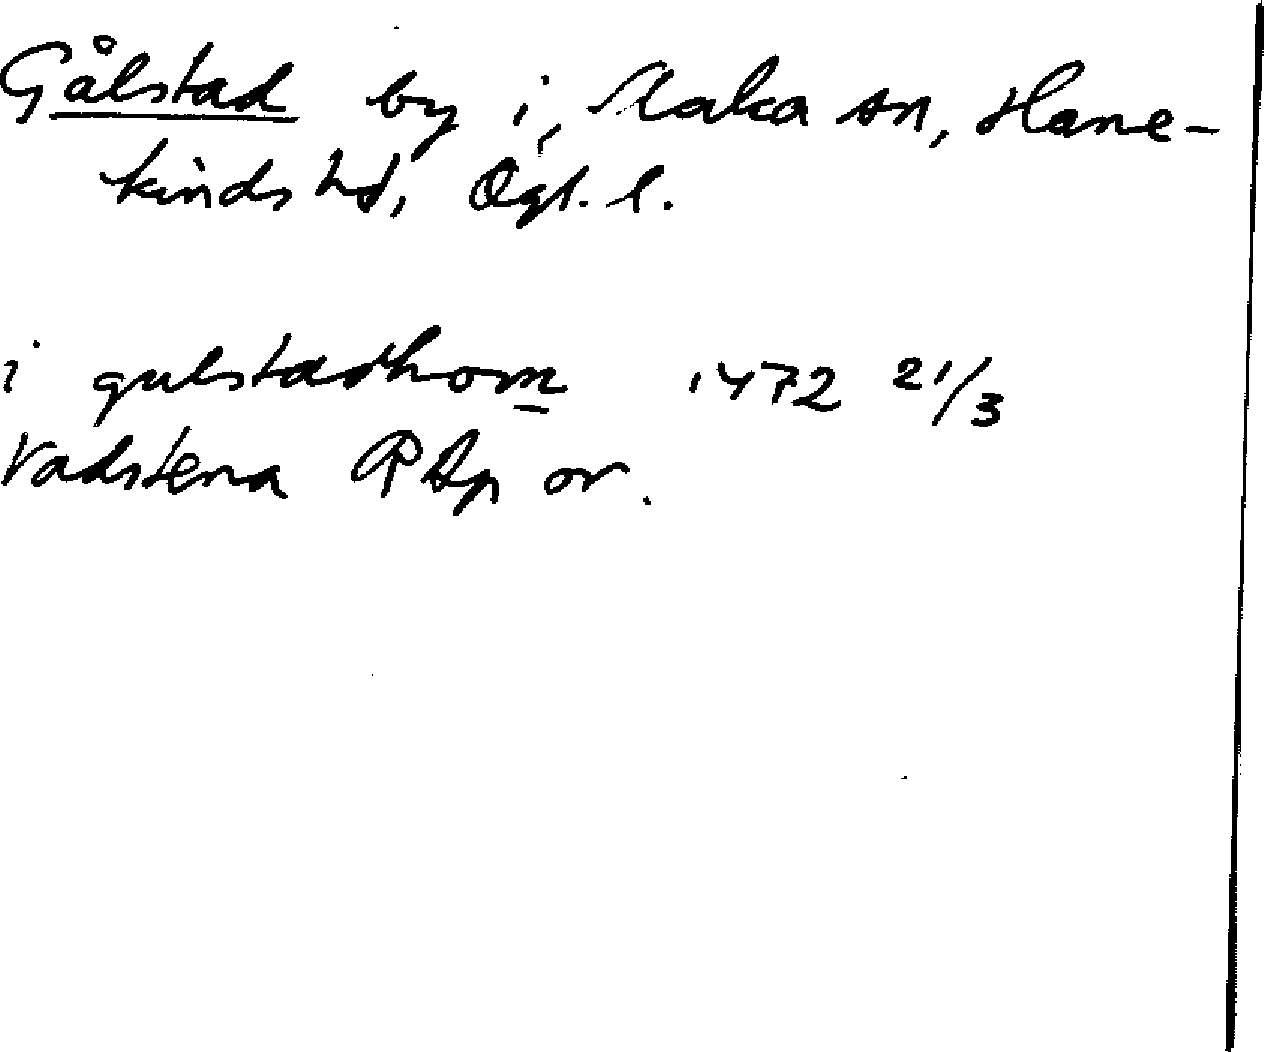 Gålstad by i Slaka sn, Hane-
kinds hd, Ögl. l.
i gulstadhom 1472 21/3
Vadstena RAp or.